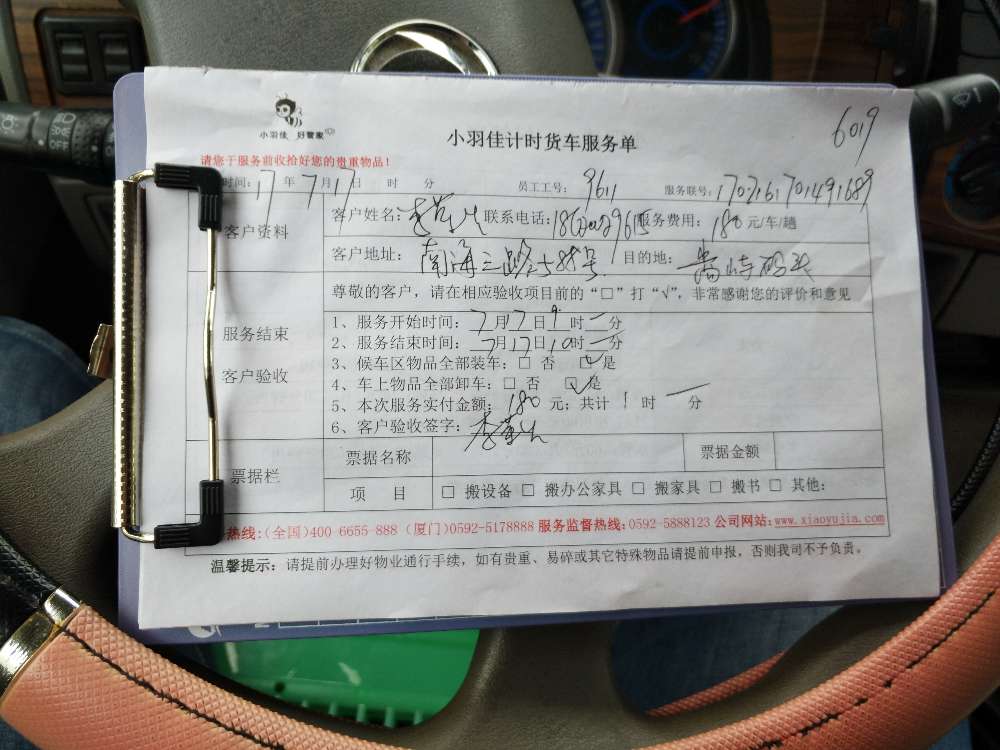 小羽佳 好管家
小羽佳计时货车服务单
6019
请您于服务前收拾好您的贵重物品!
时间: 17 年 7 月 17 日 时 分 员工工号: 9611 服务联号: 1702161701491689
客户资料
客户姓名: 联系电话: 服务费用: 180 元/车/趟
客户地址: 南海三路 号 目的地:
尊敬的客户,请在相应验收项目前的“□”打“√”,非常感谢您的评价和意见
服务结束
客户验收
1、服务开始时间: 7 月 17 日 9 时 一 分
2、服务结束时间: 7 月 17 日 10 时 一 分
3、候车区物品全部装车: □ 否 ☑ 是
4、车上物品全部卸车: □ 否 ☑ 是
5、本次服务实付金额: 180 元; 共计 1 时 一 分
6、客户验收签字:
票据栏
票据名称 票据金额
项 目 □ 搬设备 □ 搬办公家具 □ 搬家具 □ 搬书 □ 其他:
热线:(全国)400-6655-888 (厦门)0592-5178888 服务监督热线:0592-5888123 公司网站:www.xiaoyujia.com
温馨提示: 请提前办理好物业通行手续, 如有贵重、易碎或其它特殊物品请提前申报, 否则我司不予负责。